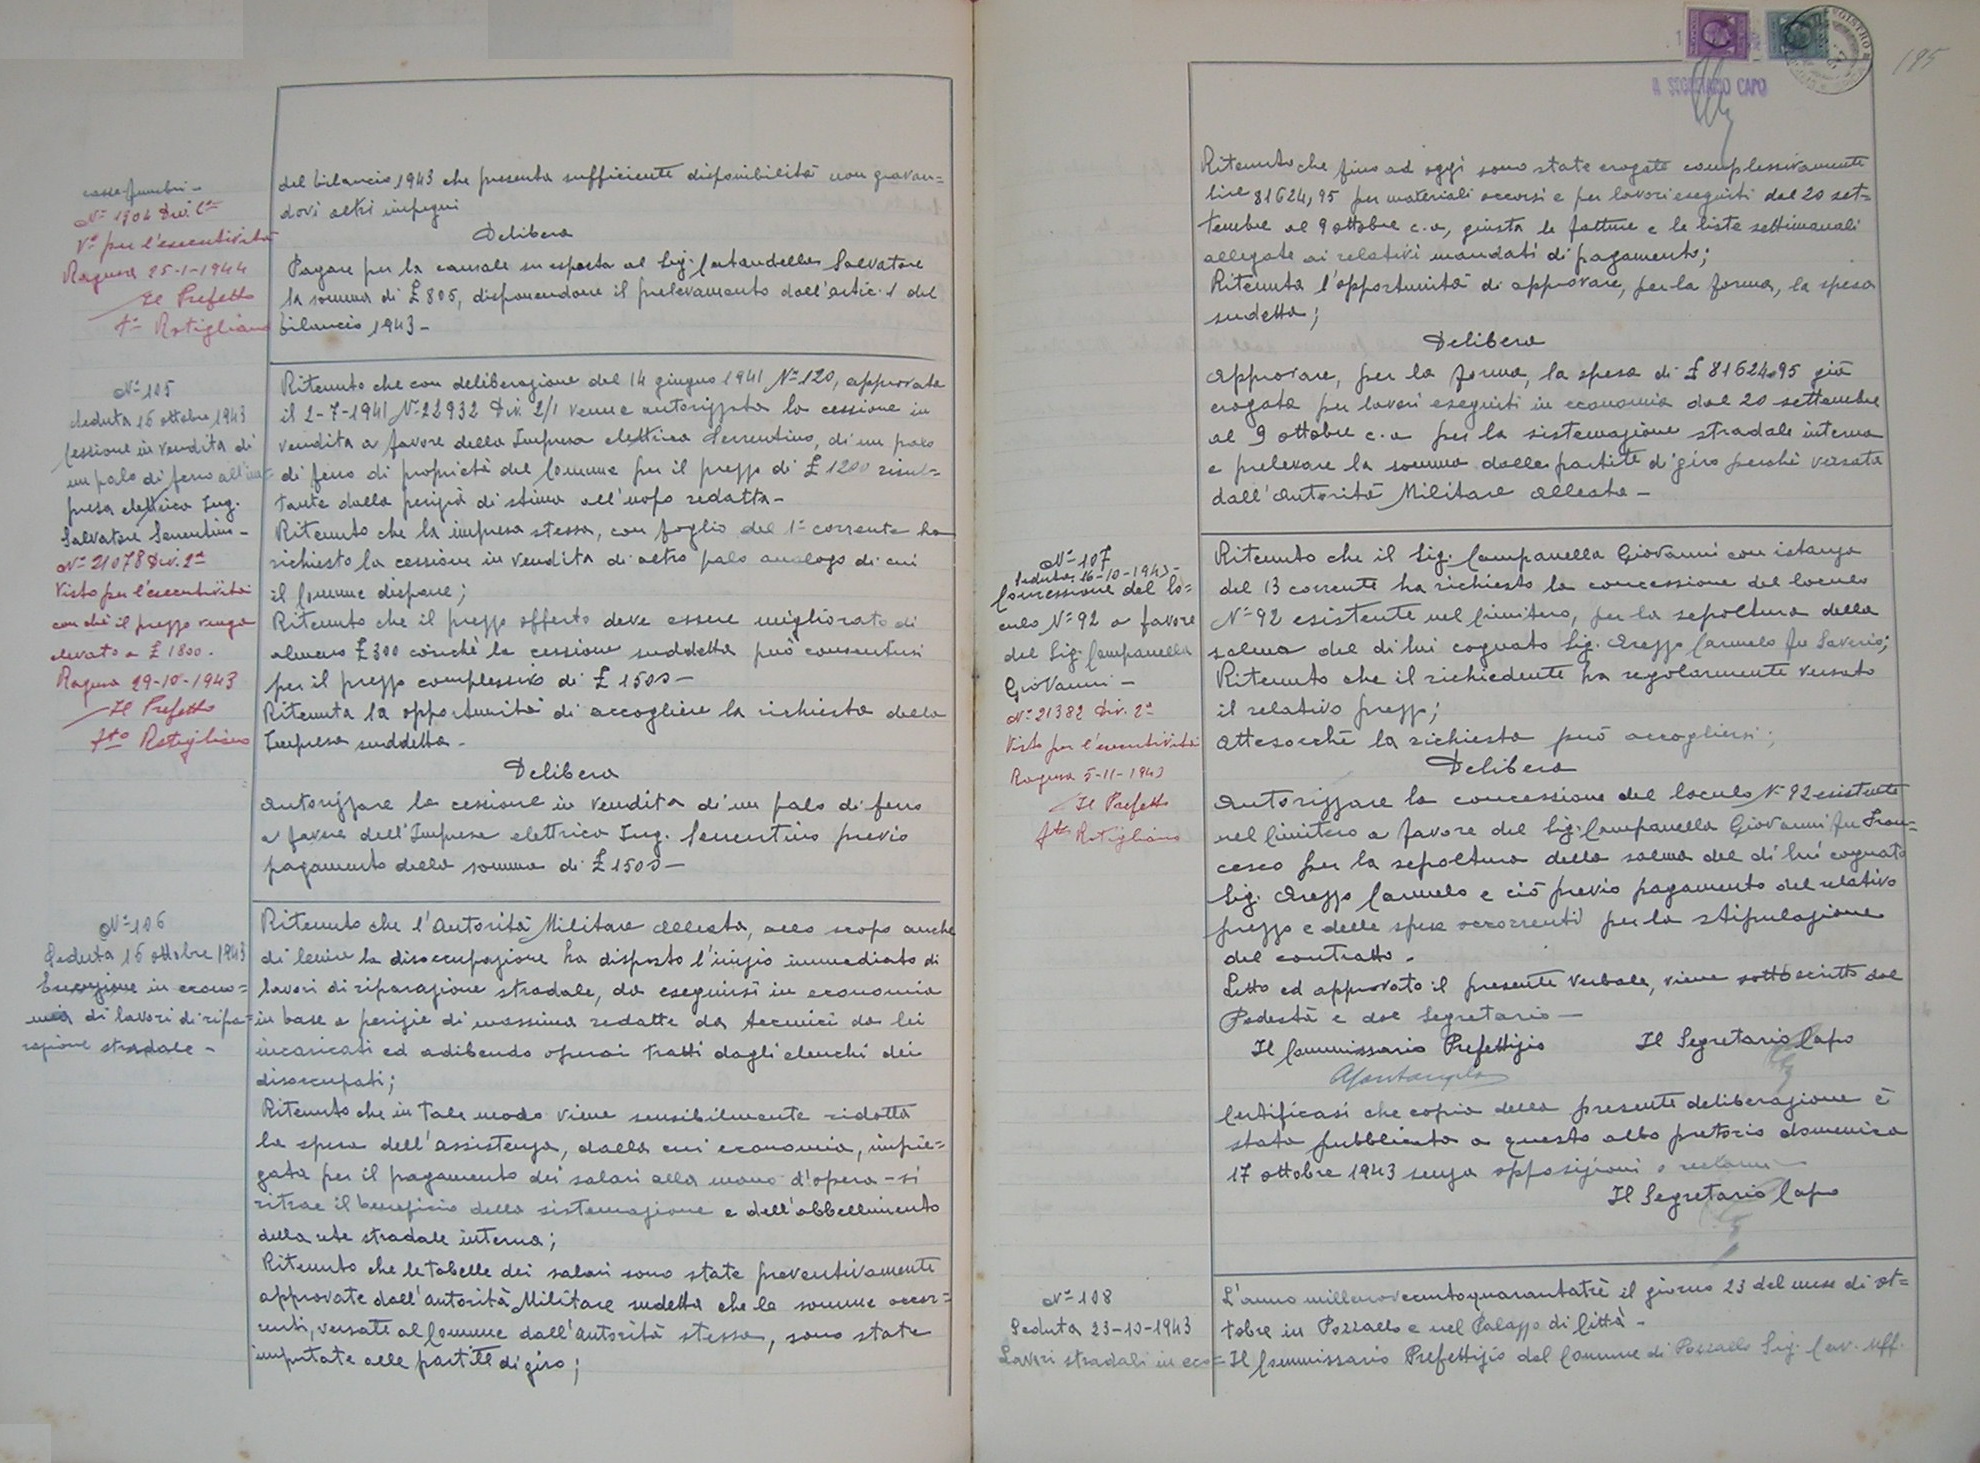 casse funebri -
N° 1904 Div. 2a
V° per l'esecutività
Ragusa 25-1-1944
Il Prefetto
f° Rotigliano
del bilancio 1943 che presenta sufficiente disponibilità non gravan=
dovi altri impegni
Delibera
Pagare per la causale su esposta al Sig. Salvatore
la somma di £ 805, disponendone il prelevamento dall'artic. 1 del
bilancio 1943 -
N° 105
Seduta 16 ottobre 1943
Cessione in vendita di
un palo di ferro all'im=
presa elettrica Ing.
Salvatore Serrentino -
N° 21078 Div. 2a
Visto per l'esecutività
con chè il prezzo venga
elevato a £ 1800.
Ragusa 29-10-1943
Il Prefetto
f.to Rotigliano
Ritenuto che con deliberazione del 14 giugno 1941 N° 120, approvata
il 2-7-1941 N° 22932 Div. 2/1 venne autorizzata la cessione in
vendita a favore della Impresa elettrica Serrentino, di un palo
di ferro di proprietà del Comune per il prezzo di £ 1200 risul=
tante dalla perizia di stima all'uopo redatta -
Ritenuto che la impresa stessa, con foglio del 1° corrente ha
richiesto la cessione in vendita di altro palo analogo di cui
il Comune dispone;
Ritenuto che il prezzo offerto deve essere migliorato di
almeno £ 300 cosichè la cessione suddetta può consentirsi
per il prezzo complessivo di £ 1500 -
Ritenuta la opportunità di accogliere la richiesta della
Impresa suddetta -
Delibera
Autorizzare la cessione in vendita di un palo di ferro
a favore dell'Impresa elettrica Ing. Serrentino previo
pagamento della somma di £ 1500 -
N° 106
Seduta 16 ottobre 1943
Esecuzione in econo=
mia di lavori di ripa=
razione stradale -
Ritenuto che l'Autorità Militare Alleata, allo scopo anche
di lenire la disoccupazione ha disposto l'inizio immediato di
lavori di riparazione stradale, da eseguirsi in economia
in base a perizie di massima redatte da tecnici da lei
incaricati ed adibendo operai tratti dagli elenchi dei
disoccupati;
Ritenuto che in tale modo viene sensibilmente ridotta
la spesa dell'assistenza, dalla cui economia, impie=
gata per il pagamento dei salari alla mano d'opera - si
ritrae il beneficio della sistemazione e dell'abbellimento
della rete stradale interna;
Ritenuto che le tabelle dei salari sono state preventivamente
approvate dall'autorità Militare sudetta che le somme occor=
renti, versate al Comune dall'Autorità stessa, sono state
imputate alle partite di giro;
IL SEGRETARIO CAPO
195
Ritenuto che fino ad oggi sono state erogate complessivamente
lire 81624,95 per materiali occorsi e per lavori eseguiti dal 20 set=
tembre al 9 ottobre c.a, giusta le fatture e le liste settimanali
allegate ai relativi mandati di pagamento;
Ritenuta l'opportunità di approvare, per la forma, la spesa
sudetta;
Delibera
Approvare, per la forma, la spesa di £ 81624.95 già
erogata per lavori eseguiti in economia dal 20 settembre
al 9 ottobre c.a per la sistemazione stradale interna
e prelevare la somma dalle partite di giro perchè versata
dall'Autorità Militare Alleata -
N° 107
Seduta 16-10-1943 -
Concessione del lo=
culo N° 92 a favore
del Sig. Campanella
Giovanni -
N° 21382 Div. 2a
Visto per l'esecutività
Ragusa 5-11-1943
Il Prefetto
f.to Rotigliano
Ritenuto che il Sig. Campanella Giovanni con istanza
del 13 corrente ha richiesto la concessione del loculo
N° 92 esistente nel Cimitero, per la sepoltura della
salma del di lui cognato Sig. Arezzo Carmelo fu Saverio;
Ritenuto che il richiedente ha regolarmente versato
il relativo prezzo;
Attesocchè la richiesta può accogliersi;
Delibera
Autorizzare la concessione del loculo N° 92 esistente
nel Cimitero a favore del Sig. Campanella Giovanni fu Fran=
cesco per la sepoltura della salma del di lui cognato
Sig. Arezzo Carmelo e ciò previo pagamento del relativo
prezzo e delle spese occorrenti per la stipulazione
del contratto.
Letto ed approvato il presente verbale, viene sottoscritto dal
Podestà e dal Segretario -
Il Commissario Prefettizio Il Segretario Capo
Certificasi che copia della presente deliberazione è
stata pubblicata a questo albo pretorio domenica
17 ottobre 1943 senza opposizioni o reclami -
Il Segretario Capo
N° 108
Seduta 23-10-1943
Lavori stradali in eco=
L'anno millenovecentoquarantatrè il giorno 23 del mese di ot=
tobre in Pozzallo e nel Palazzo di Città -
Il Commissario Prefettizio del Comune di Pozzallo Sig. Cav. Uff.